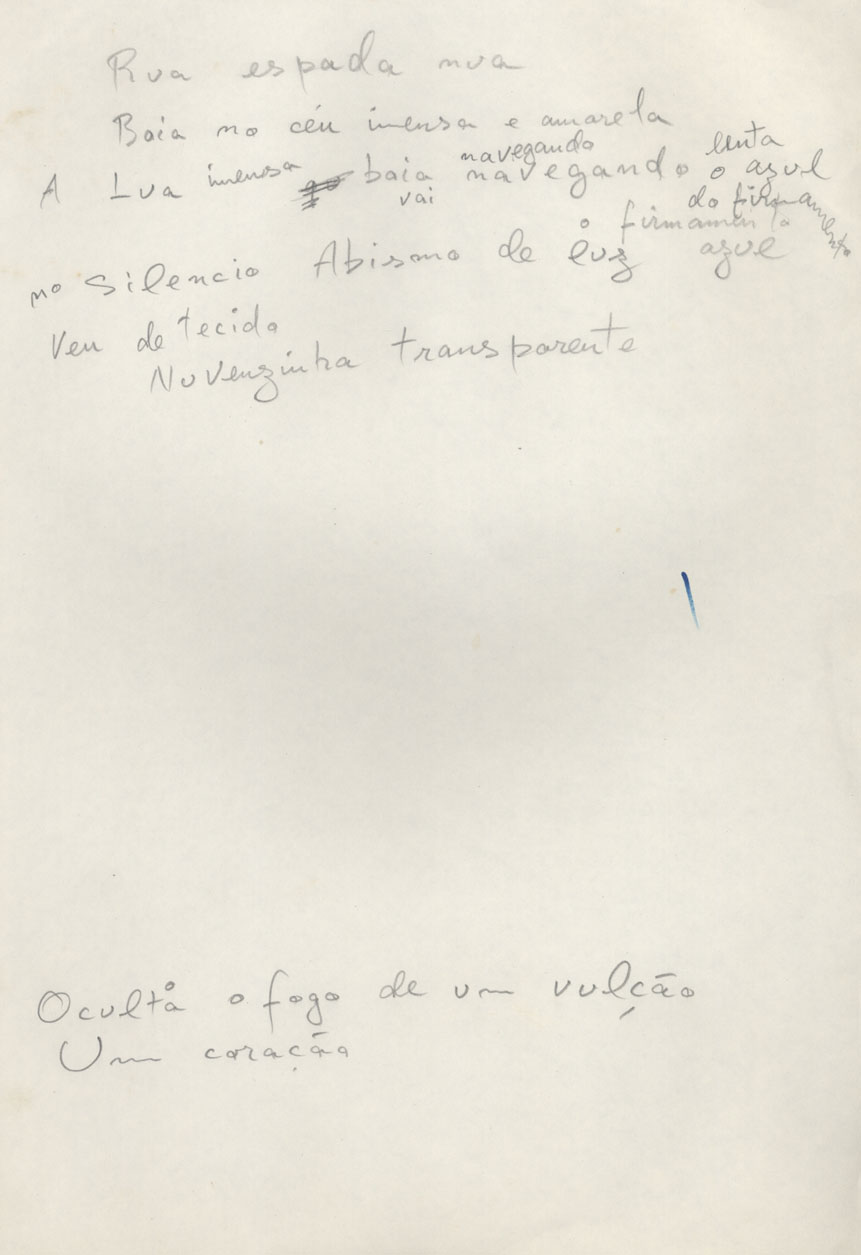 Rua espada nua
Boia no céu imensa e amarela
navegando lenta
A Lua imensa boia navegando o azul
vai do firmamento
o firmamento
no Silencio Abismo de luz azul
Veu de tecido
Nuvenzinha transparente
Oculto o fogo de um vulção
Um coração